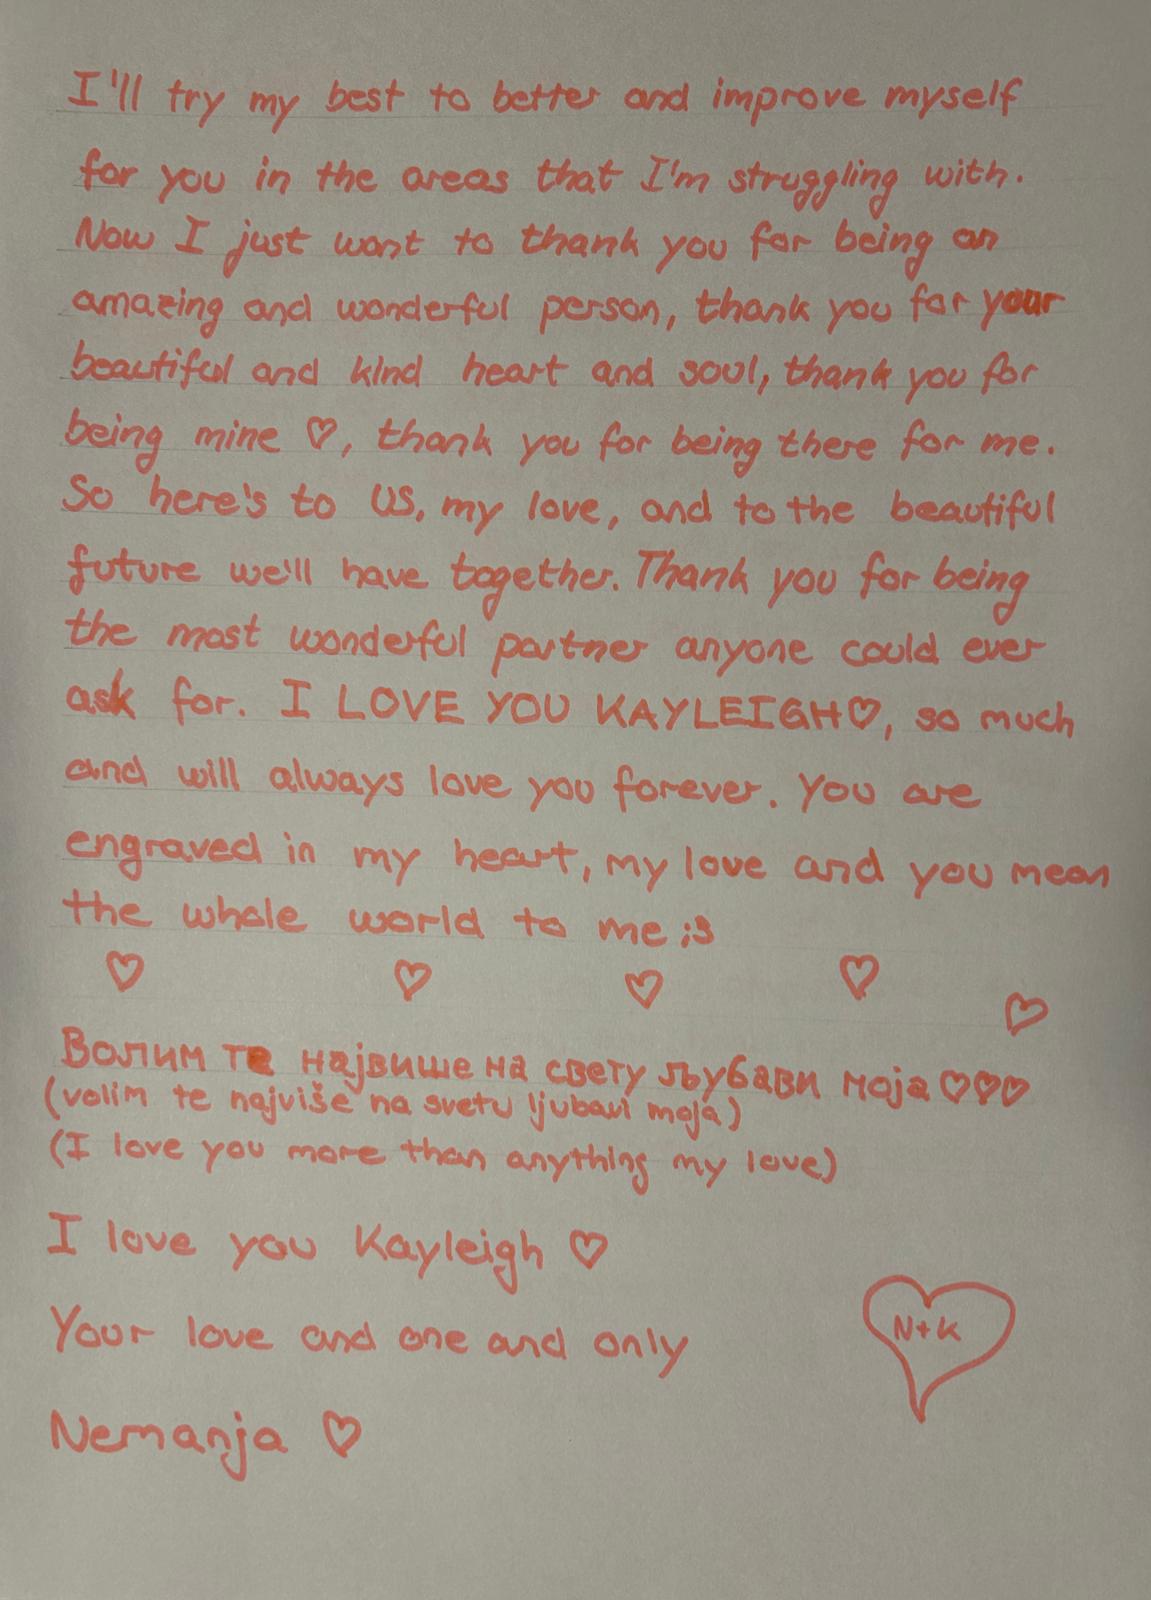 I'll try my best to better and improve myself
for you in the areas that I'm struggling with.
Now I just want to thank you for being an
amazing and wonderful person, thank you for your
beautiful and kind heart and soul, thank you for
being mine ♡, thank you for being there for me.
So here's to US, my love, and to the beautiful
future we'll have together. Thank you for being
the most wonderful partner anyone could ever
ask for. I LOVE YOU KAYLEIGH♡, so much
and will always love you forever. You are
engraved in my heart, my love and you mean
the whole world to me ;3
♡ ♡ ♡ ♡ ♡
Волим те највише на свету љубави моја ♡♡♡
(volim te najviše na svetu ljubavi moja)
(I love you more than anything my love)
I love you Kayleigh ♡
Your love and one and only
N+K
Nemanja ♡